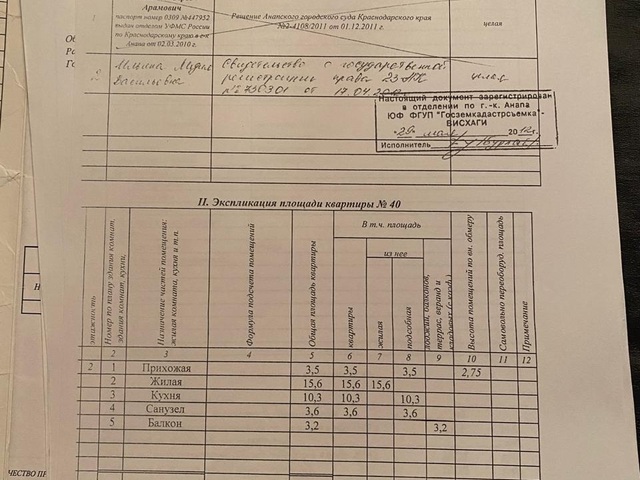 Арамович
паспорт номер 0309 №447952
выдан отделом УФМС России
по Краснодарскому краю в г-к
Анапа от 02.03.2010 г.
Решение Анапского городского суда Краснодарского края
№2-4108/2011 от 01.12.2011 г.
целая
1
2
Васильевна
Свидетельство о государственной
регистрации права 23-АК
№ 730301 от 17.04.2012
целая
Настоящий документ зарегистрирован
в отделении по г.-к. Анапа
ЮФ ФГУП "Госземкадастрсъемка"-
ВИСХАГИ
«29» мая 2012г.
Исполнитель
II. Экспликация площади квартиры № 40
этажность
Номер по плану здания комнат, здания комнат, кухни,
Назначение частей помещения: жилая комната, кухня и т.п.
Формула подсчета помещений
Общая площадь квартиры
В т.ч. площадь
квартиры
из нее
жилая
подсобная
лоджий, балконов, террас, веранд и
Высота помещений по вн. обмеру
Самовольно переоборуд. площадь
Примечание
2 3 4 5 6 7 8 9 10 11 12
2 1 Прихожая 3,5 3,5 3,5 2,75
2 Жилая 15,6 15,6 15,6
3 Кухня 10,3 10,3 10,3
4 Санузел 3,6 3,6 3,6
5 Балкон 3,2 3,2